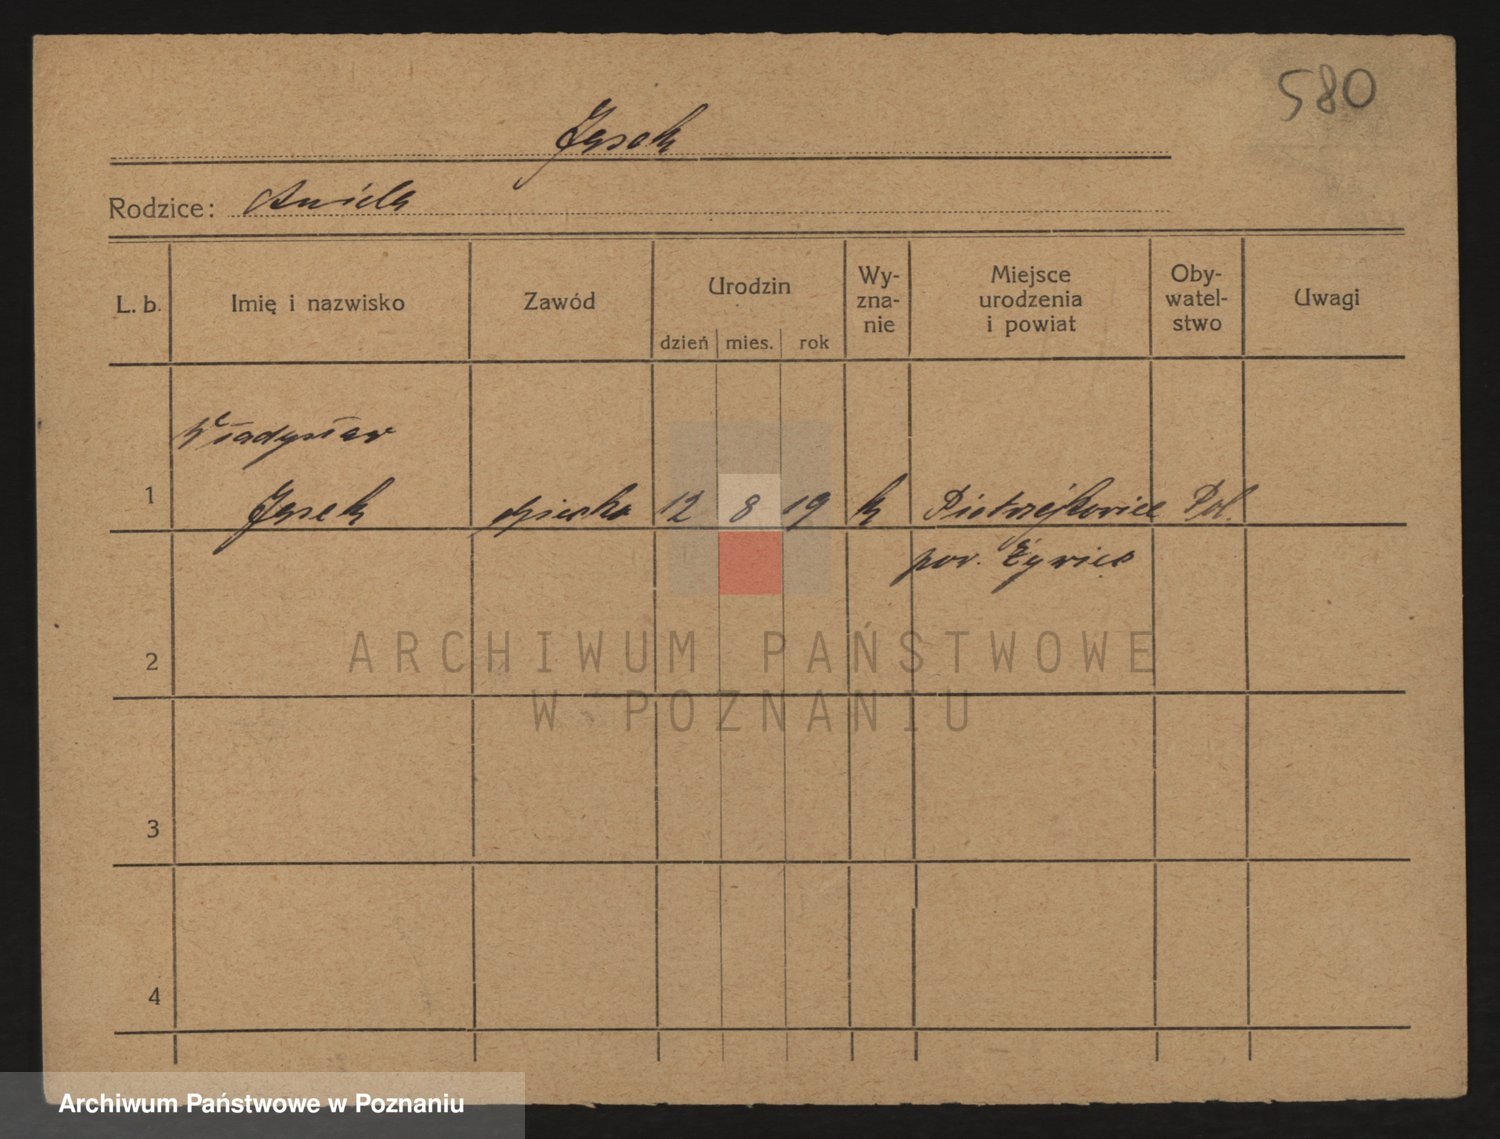 580
Jęsek
Rodzice: Aniela
L. b. Imię i nazwisko Zawód Urodzin Wy-
zna-
nie Miejsce
urodzenia
i powiat Oby-
watel-
stwo Uwagi
dzień mies. rok
Władysław
1 Jęsek 12 8 19 k Pietrzykowice Pol.
pow. Żywiec
2
ARCHIWUM PAŃSTWOWE
W POZNANIU
3
4
Archiwum Państwowe w Poznaniu